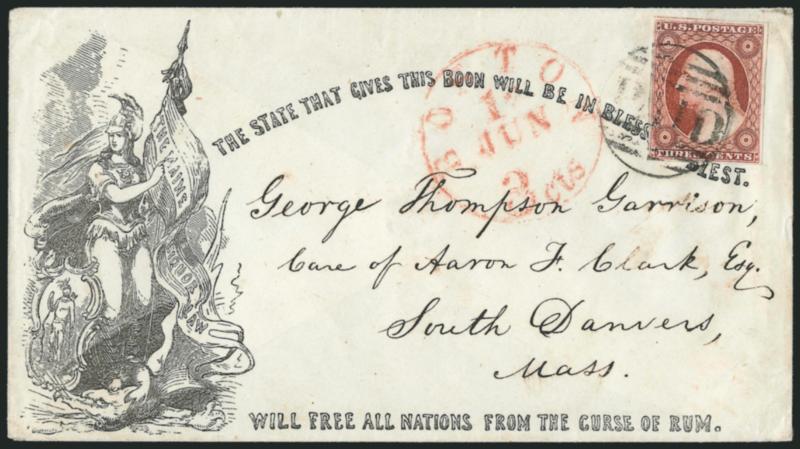 THE MAINE
LIQUOR LAW
THE STATE THAT GIVES THIS BOON WILL BE IN BLESS
BLEST.
BOSTON
JUN
3 cts
U.S. POSTAGE
PAID
THREE CENTS
George Thompson Garrison,
Care of Aaron F. Clark, Esq.
South Danvers,
Mass.
WILL FREE ALL NATIONS FROM THE CURSE OF RUM.